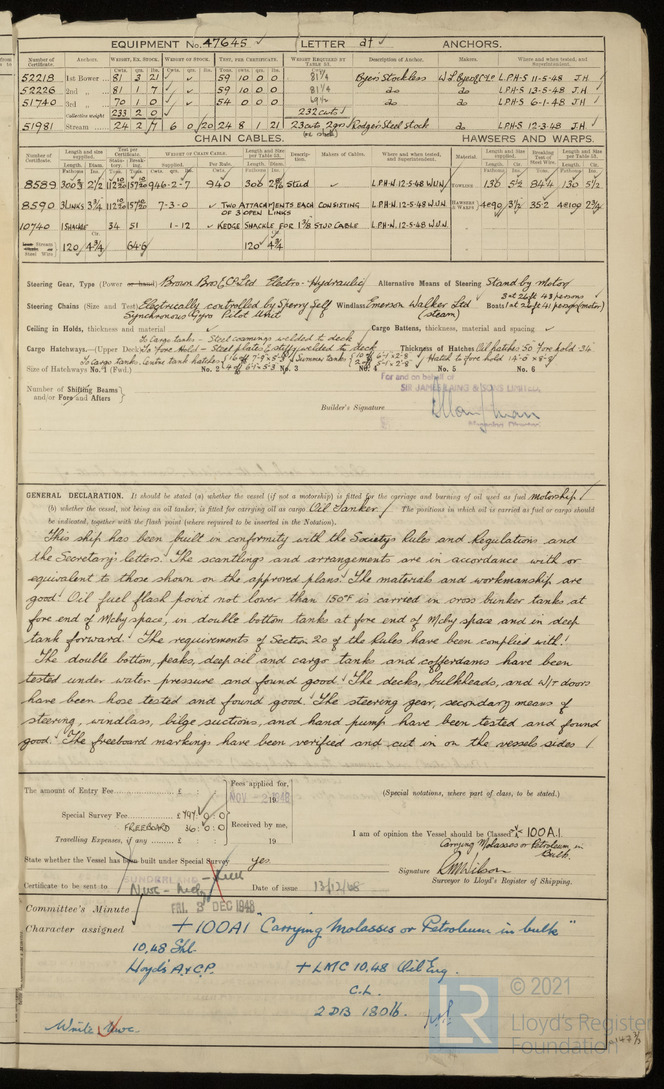 EQUIPMENT No. 47645 LETTER at ANCHORS.
Number of Certificate. Anchors. WEIGHT, EX. STOCK. WEIGHT OF STOCK. TEST, PER CERTIFICATE. WEIGHT REQUIRED BY TABLE 53. Description of Anchor. Makers. Where and when tested, and Superintendent.
Cwts. qrs. lbs. Cwts. qrs. lbs. Tons. cwts. qrs. lbs.
52218 1st Bower 81 3 21 59 10 0 0 81¼ Byers Stockless L.P.H-S 11-5-48 J.H
52226 2nd „ 81 1 7 59 10 0 0 81¼ do do L.P.H-S 13-5-48 J.H
51740 3rd „ 70 1 0 54 0 0 0 69½ do do L.P.H-S 6-1-48 J.H
Collective weight 233 2 0 232 cwts
51981 Stream 24 2 7 6 0 20 24 8 1 21 23 cwts 2 qrs Rodgers Steel stock do L.P.H-S 12-3-48 J.H
(ex stock)
CHAIN CABLES. HAWSERS AND WARPS.
Number of Certificate. Length and size supplied. Test per Certificate WEIGHT OF CHAIN CABLE. Length and Size per Table 53. Description. Makers of Cables. Where and when tested, and Superintendent. Material. Length and Size supplied. Breaking Test of Steel Wire. Length and Size per Table 53.
8589 300¾ 2½ 946-2-7 940 300 Stud L.P.H-N. 12-5-48 W.U.N. TOWLINE 130 5½ 84.4 130 5½
8590 3 LINKS 3¾ 7-3-0 TWO ATTACHMENTS EACH CONSISTING L.P.H-N. 12-5-48 W.U.N. HAWSERS & WARPS 4@90 3½ 35.2 4@100 2¾
OF 3 OPEN LINKS
10740 1 SHACKLE 34 51 1-12 KEDGE SHACKLE FOR 1⅜ STUD CABLE L.P.H-N. 12-5-48 W.U.N.
Steel Wire 120 4¾ 64.6 120 4¾
Steering Gear, Type (Power or hand) Brown Bros & Co Ltd Electro-Hydraulic Alternative Means of Steering Stand by motor
Steering Chains (Size and Test) Electrically controlled by Sperry Self Windlass Emerson Walker Ltd Boats 3 at 26 ft 43 persons
Synchronous Gyro Pilot Unit (steam) 1 at 26 ft 41 persons (motor)
Ceiling in Holds, thickness and material Cargo Battens, thickness, material and spacing
To Cargo tanks - Steel coamings welded to deck
Cargo Hatchways.—(Upper Deck) To Fore Hold - Steel plates & stiffs welded to deck Thickness of Hatches Oil cargo 50 Fore hold .34
To Cargo tanks, Centre tank hatches 16 off 7-9 x 5-3 Summer tanks 10 off 6-1 x 2-8 Hatch to fore hold 14'-0 x 8-8
Size of Hatchways No. 1 (Fwd.) No. 2 4 off 6-1 x 5-3 No. 3 No. 4 No. 5 No. 6
Number of Shifting Beams
and/or Fore and Afters
For and on behalf of
SIR JAMES LAING & SONS LIMITED
Builder's Signature
GENERAL DECLARATION. It should be stated (a) whether the vessel (if not a motorship) is fitted for the carriage and burning of oil used as fuel motorship
(b) whether the vessel, not being an oil tanker, is fitted for carrying oil as cargo Oil Tanker The positions in which oil is carried as fuel or cargo should
be indicated, together with the flash point (where required to be inserted in the Notation).
This ship has been built in conformity with the Societys Rules and Regulations and
the Secretary's letters. The scantlings and arrangements are in accordance with or
equivalent to those shown on the approved plans. The materials and workmanship are
good. Oil fuel flash point not lower than 150°F is carried in cross bunker tanks at
fore end of Mchy space, in double bottom tanks at fore end of Mchy space and in deep
tank forward. The requirements of Section 20 of the Rules have been complied with.
The double bottom, peaks, deep oil and cargo tanks and cofferdams have been
tested under water pressure and found good. The decks, bulkheads, and W/T doors
have been hose tested and found good. The steering gear, secondary means of
steering, windlass, bilge suctions, and hand pump have been tested and found
good. The freeboard markings have been verified and cut in on the vessels sides
The amount of Entry Fee £ : : Fees applied for,
NOV - 2 1948 19
(Special notations, where part of class, to be stated.)
Special Survey Fee £ 797 : 0 : 0
FREEBOARD 36 : 0 : 0 Received by me,
Travelling Expenses, if any £ : : 19
I am of opinion the Vessel should be Classed + 100 A.1.
Carrying Molasses or Petroleum in
Bulk.
State whether the Vessel has been built under Special Survey yes
Signature
Surveyor to Lloyd's Register of Shipping.
SUNDERLAND
Certificate to be sent to Nwc - Mchy - Hull Date of issue 13/12/48
Committee's Minute FRI. 3 DEC 1948
Character assigned +100A1 "Carrying Molasses or Petroleum in bulk"
10,48 Shl.
Lloyd's A & C.P. + LMC 10,48 Oil Eng.
C.L.
2 DB 180 lb.
Write Nwc.
LR
© 2021
Lloyd's Register
Foundation